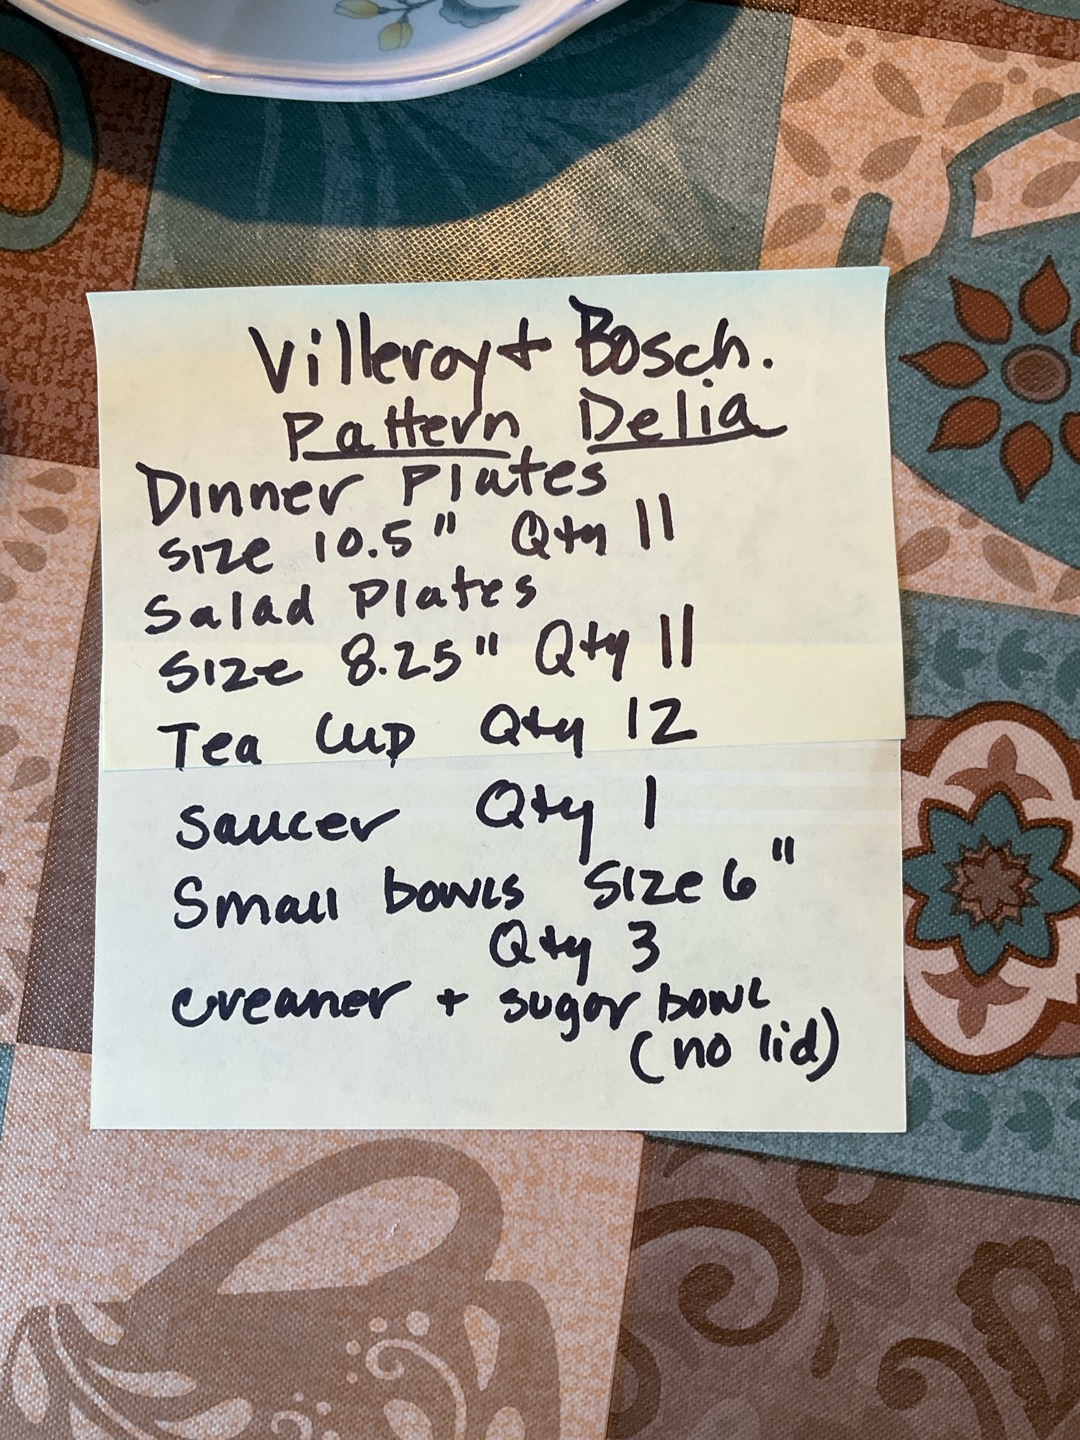 Villeroy + Bosch.
Pattern Delia
Dinner Plates
Size 10.5" Qty 11
Salad Plates
Size 8.25" Qty 11
Tea Cup Qty 12
Saucer Qty 1
Small bowls Size 6"
Qty 3
creamer + sugar bowl
(no lid)